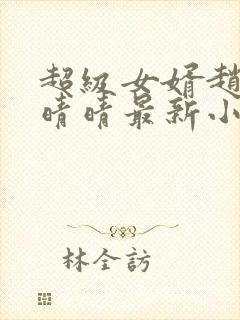 超级女婿趙
晴晴最新小
林全訪